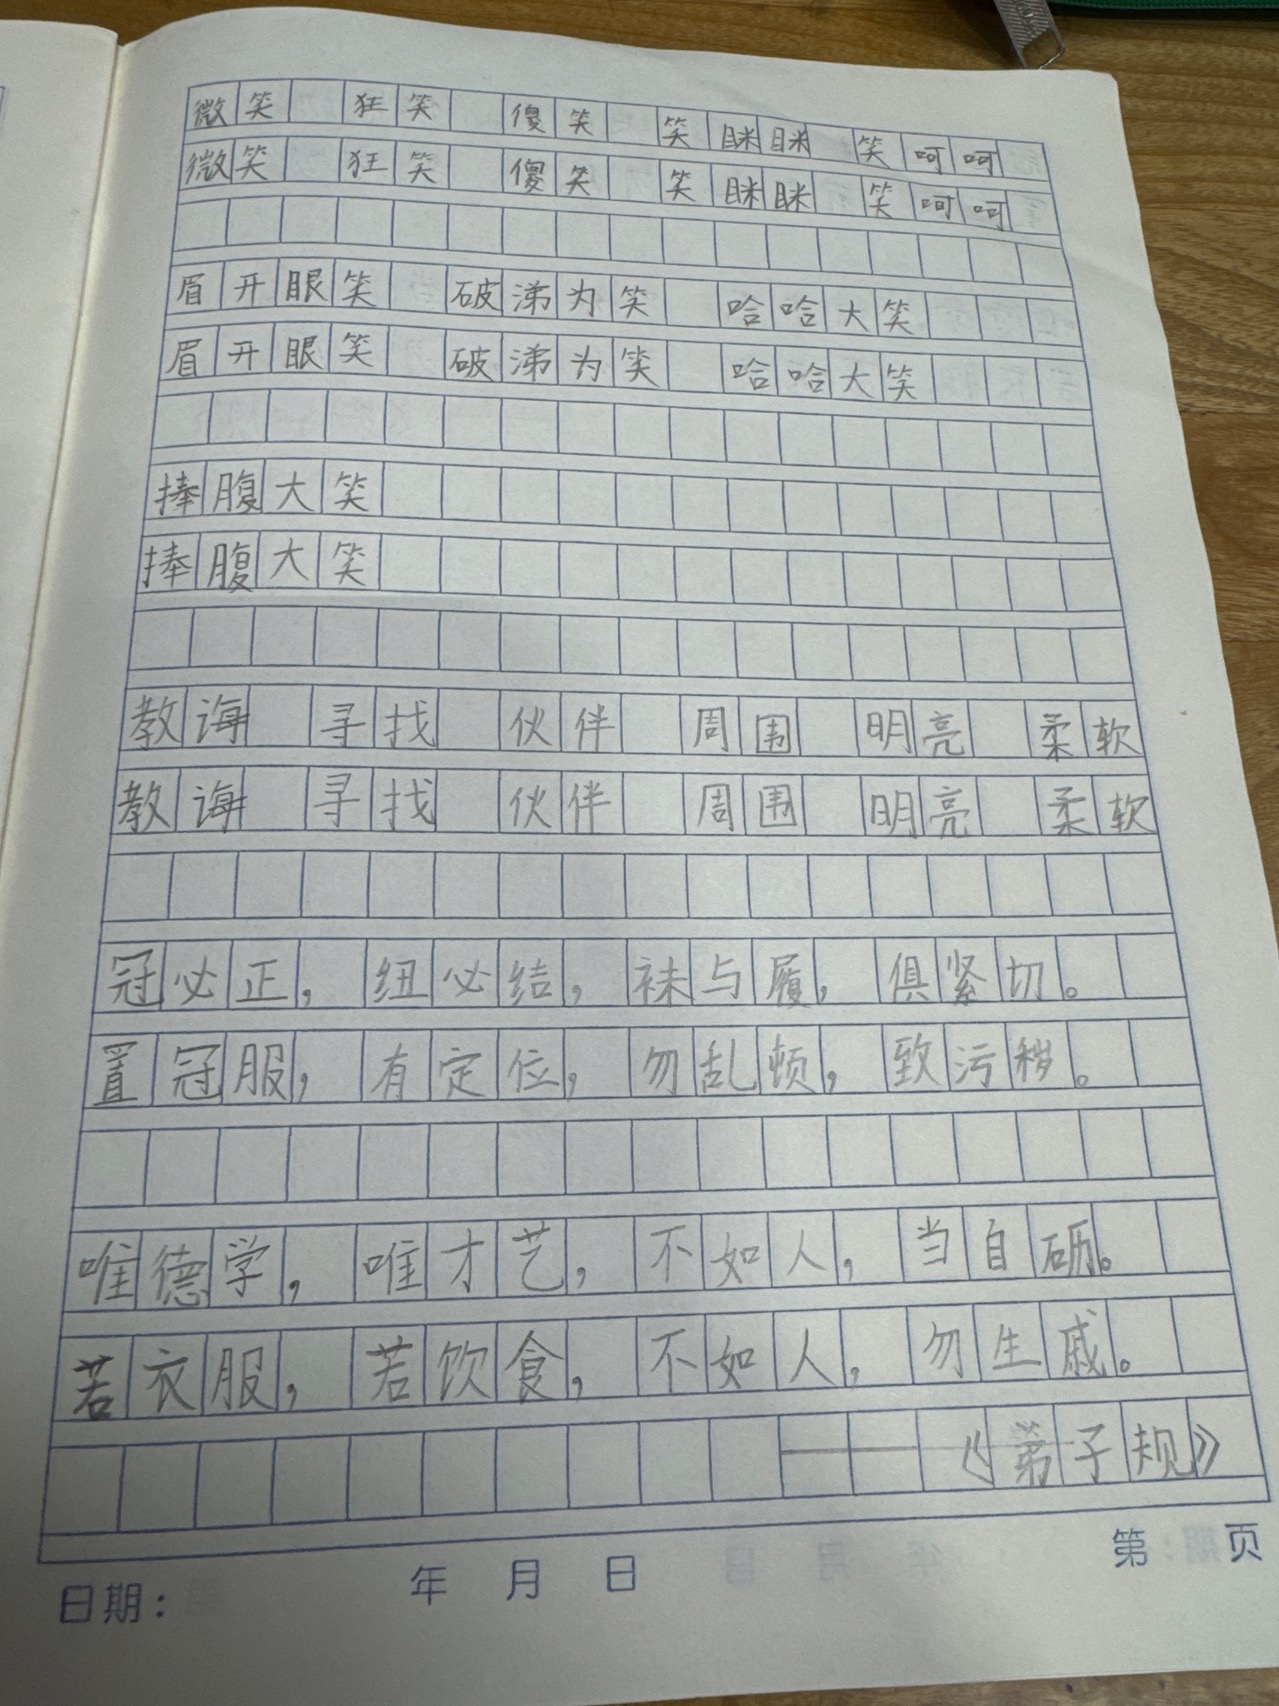 微笑 狂笑 傻笑 笑眯眯 笑呵呵
微笑 狂笑 傻笑 笑眯眯 笑呵呵
眉开眼笑 破涕为笑 哈哈大笑
眉开眼笑 破涕为笑 哈哈大笑
捧腹大笑
捧腹大笑
教诲 寻找 伙伴 周围 明亮 柔软
教诲 寻找 伙伴 周围 明亮 柔软
冠必正，纽必结，袜与履，俱紧切。
置冠服，有定位，勿乱顿，致污秽。
唯德学，唯才艺，不如人，当自砺。
若衣服，若饮食，不如人，勿生戚。
——《弟子规》
日期： 年 月 日 第 页